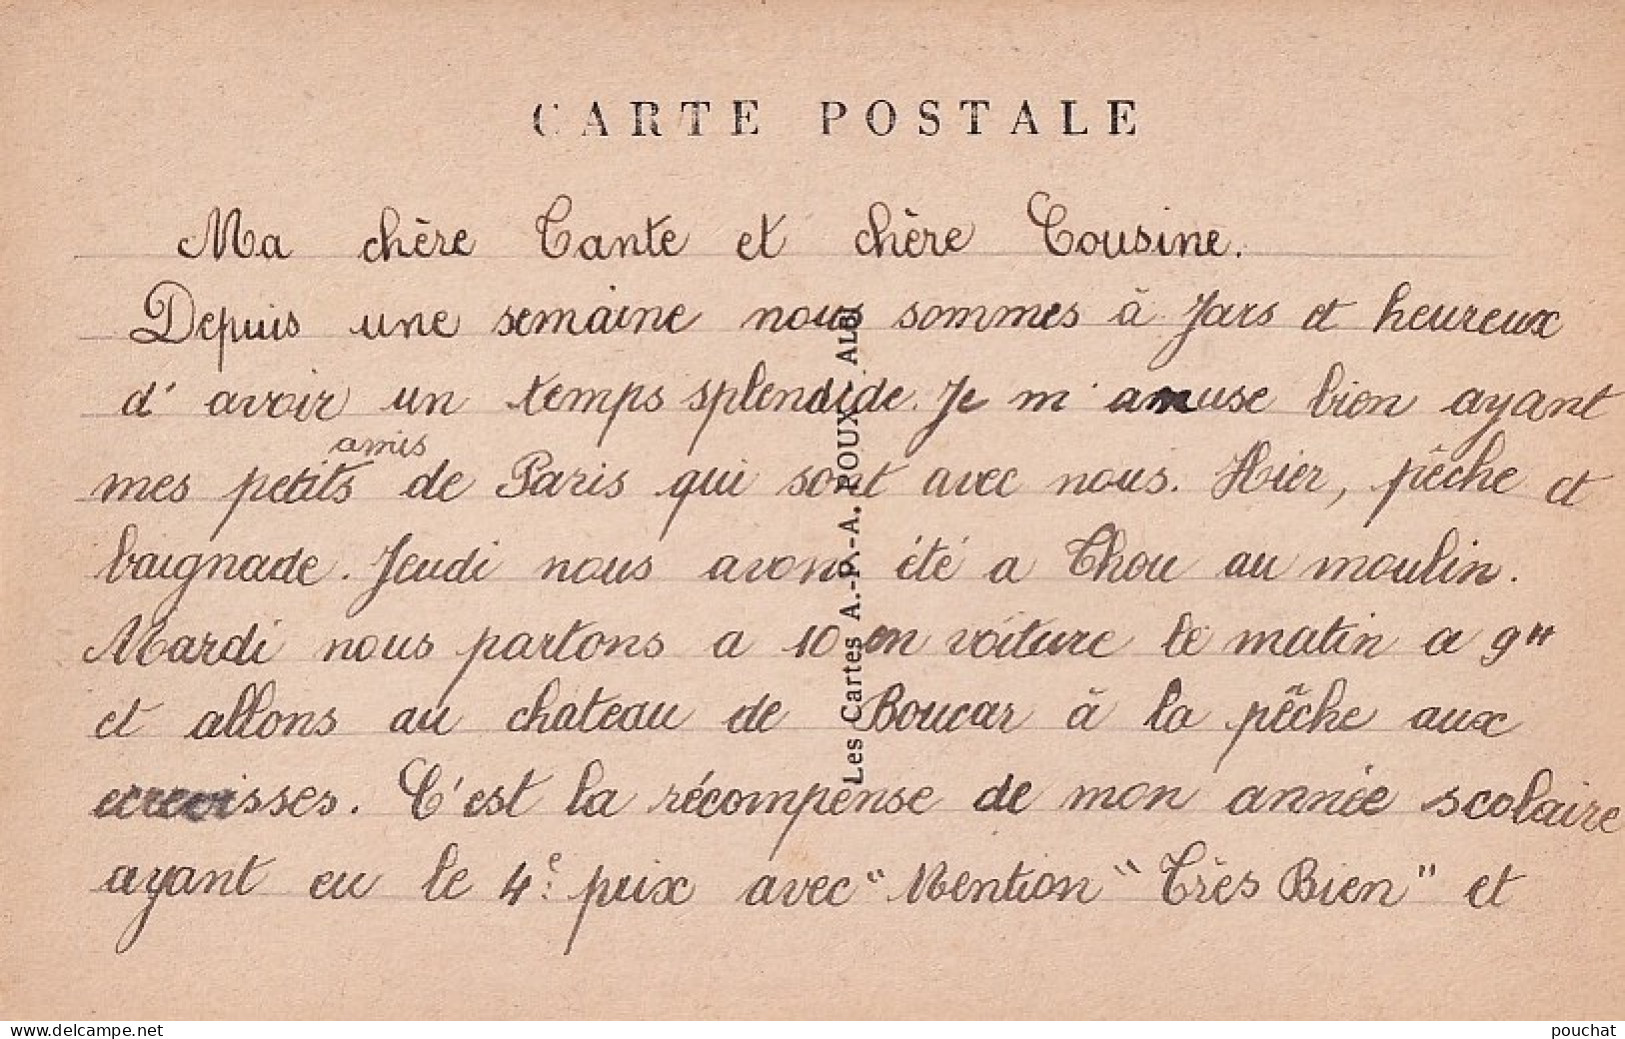 CARTE POSTALE
Ma chère Tante et chère Cousine.
Depuis une semaine nous sommes à Jars et heureux
d'avoir un temps splendide. Je m'amuse bien ayant
amis
mes petits de Paris qui sont avec nous. Hier, pêche et
baignade. Jeudi nous avons été a Thou au moulin.
Mardi nous partons a 10 en voiture le matin a 9"
et allons au chateau de Boucar à la pêche aux
ecrevisses. C'est la récompense de mon année scolaire
ayant eu le 4e prix avec "Mention "Très Bien" et
Les Cartes A.-P.-A. POUX ALBI
www.delcampe.net
pouchat